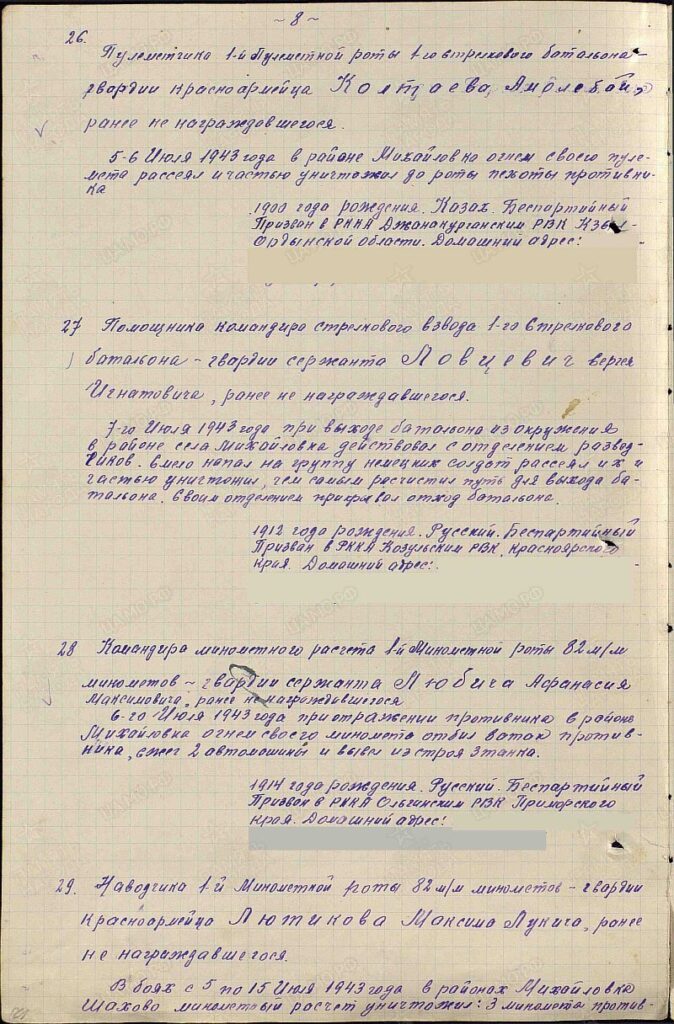 ~ 8 ~
26.
Пулеметчика 1-й Пулеметной роты 1-го стрелкового батальона -
гвардии красноармейца Колтаева,
ранее не награждавшегося.
5-6 Июля 1943 года в районе Михайловка огнем своего пуле-
мета рассеял и частью уничтожил до роты пехоты противни-
ка
1900 года рождения. Казах. Беспартийный
Призван в РККА Джанакурганским РВК Кзыл-
Ординской области. Домашний адрес:
27 Помощника командира стрелкового взвода 1-го Стрелкового
батальона - гвардии сержанта Ловцевич Сергея
Игнатовича, ранее не награждавшегося.
7-го Июля 1943 года при выходе батальона из окружения
в районе села Михайловка действовал с отделением развед-
чиков. Смело напал на группу немецких солдат рассеял их и
частью уничтожил, тем самым расчистил путь для выхода ба-
тальона. Своим отделением прикрывал отход батальона.
1912 года рождения. Русский. Беспартийный
Призван в РККА Козульским РВК, Красноярского
края. Домашний адрес:
28 Командира минометного расчета 1-й Минометной роты 82 м/м
минометов - гвардии сержанта Любича Афанасия
Максимовича, ранее не награждавшегося
6-го Июля 1943 года при отражении противника в районе
Михайловка огнем своего миномета отбил 8 атак против-
ника, сжег 2 автомашины и вывел из строя 3 танка.
1914 года рождения. Русский. Беспартийный
Призван в РККА Ольгинским РВК Приморского
края. Домашний адрес:
29. Наводчика 1-й Минометной роты 82 м/м минометов - гвардии
красноармейца Лютикова Максима Лукича, ранее
не награждавшегося.
В боях с 5 по 15 Июля 1943 года в районах Михайловка
Шахово минометный расчет уничтожил: 3 миномета против-